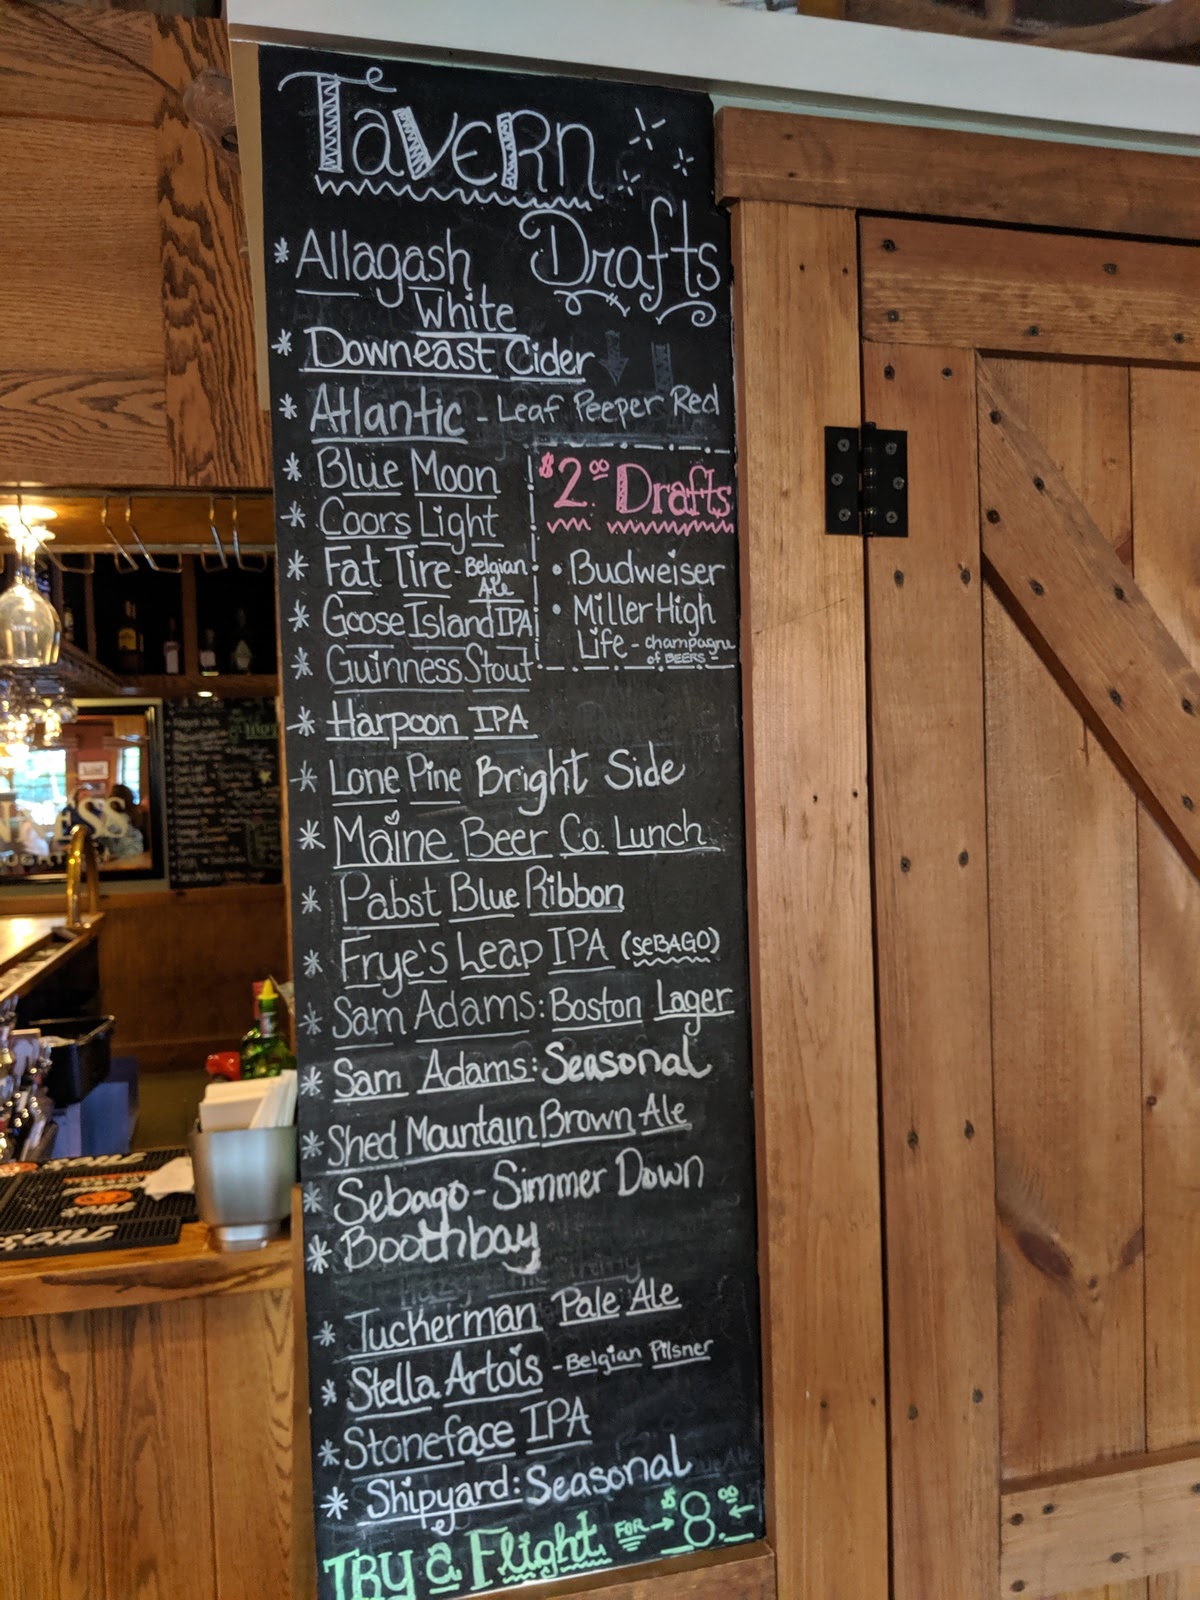 Tavern
Drafts
* Allagash
White
* Downeast Cider
* Atlantic - Leaf Peeper Red
* Blue Moon
* Coors Light
* Fat Tire - Belgian
Ale
* Goose Island IPA
* Guinness Stout
$2.00 Drafts
• Budweiser
• Miller High
Life - champagne
of BEERS -
* Harpoon IPA
* Lone Pine Bright Side
* Maine Beer Co. Lunch
* Pabst Blue Ribbon
* Frye's Leap IPA (SEBAGO)
* Sam Adams: Boston Lager
* Sam Adams: Seasonal
* Shed Mountain Brown Ale
* Sebago - Simmer Down
* Boothbay
* Tuckerman Pale Ale
* Stella Artois - Belgian Pilsner
* Stoneface IPA
* Shipyard: Seasonal
TRY a Flight FOR → $8.00 ←